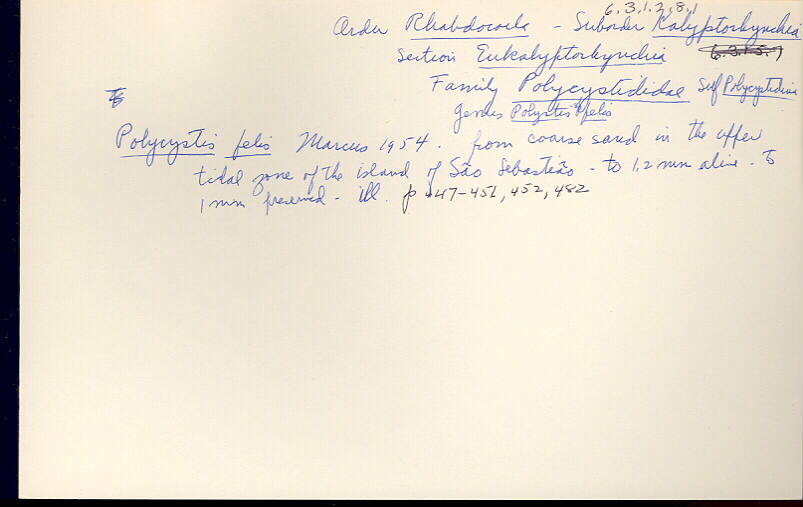 6.3.1.2.8.1
Order Rhabdocoela - Suborder Kalyptorhynchia
Section Eukalyptorhynchia 6.3.1.5.1
Family Polycystididae Subf Polycystidinae
Genus Polycystis felis
Polycystis felis Marcus 1954. from coarse sand in the upper
tidal zone of the island of São Sebastião - to 1.2 mm alive - to
1 mm preserved - ill. p 447-451, 452, 482